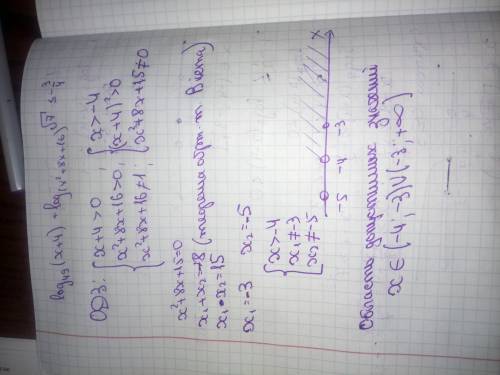 log₄₉(x+4) + log₍ₓ²₊₈ₓ₊₁₆₎√7 ≤ -3/4
ОДЗ: { x+4>0 ; { x>-4
x²+8x+16>0 ; (x+4)²>0
x²+8x+16≠1 ; x²+8x+15≠0
x²+8x+15=0
x₁+x₂=-8 (теорема обрт. т. Виета)
x₁•x₂=15
x₁=-3 x₂=-5
{ x>-4
x₁≠-3
x₂≠-5
-5 -4 -3 x
Область допустимых значений
x∈(-4;-3)∪(-3;+∞)